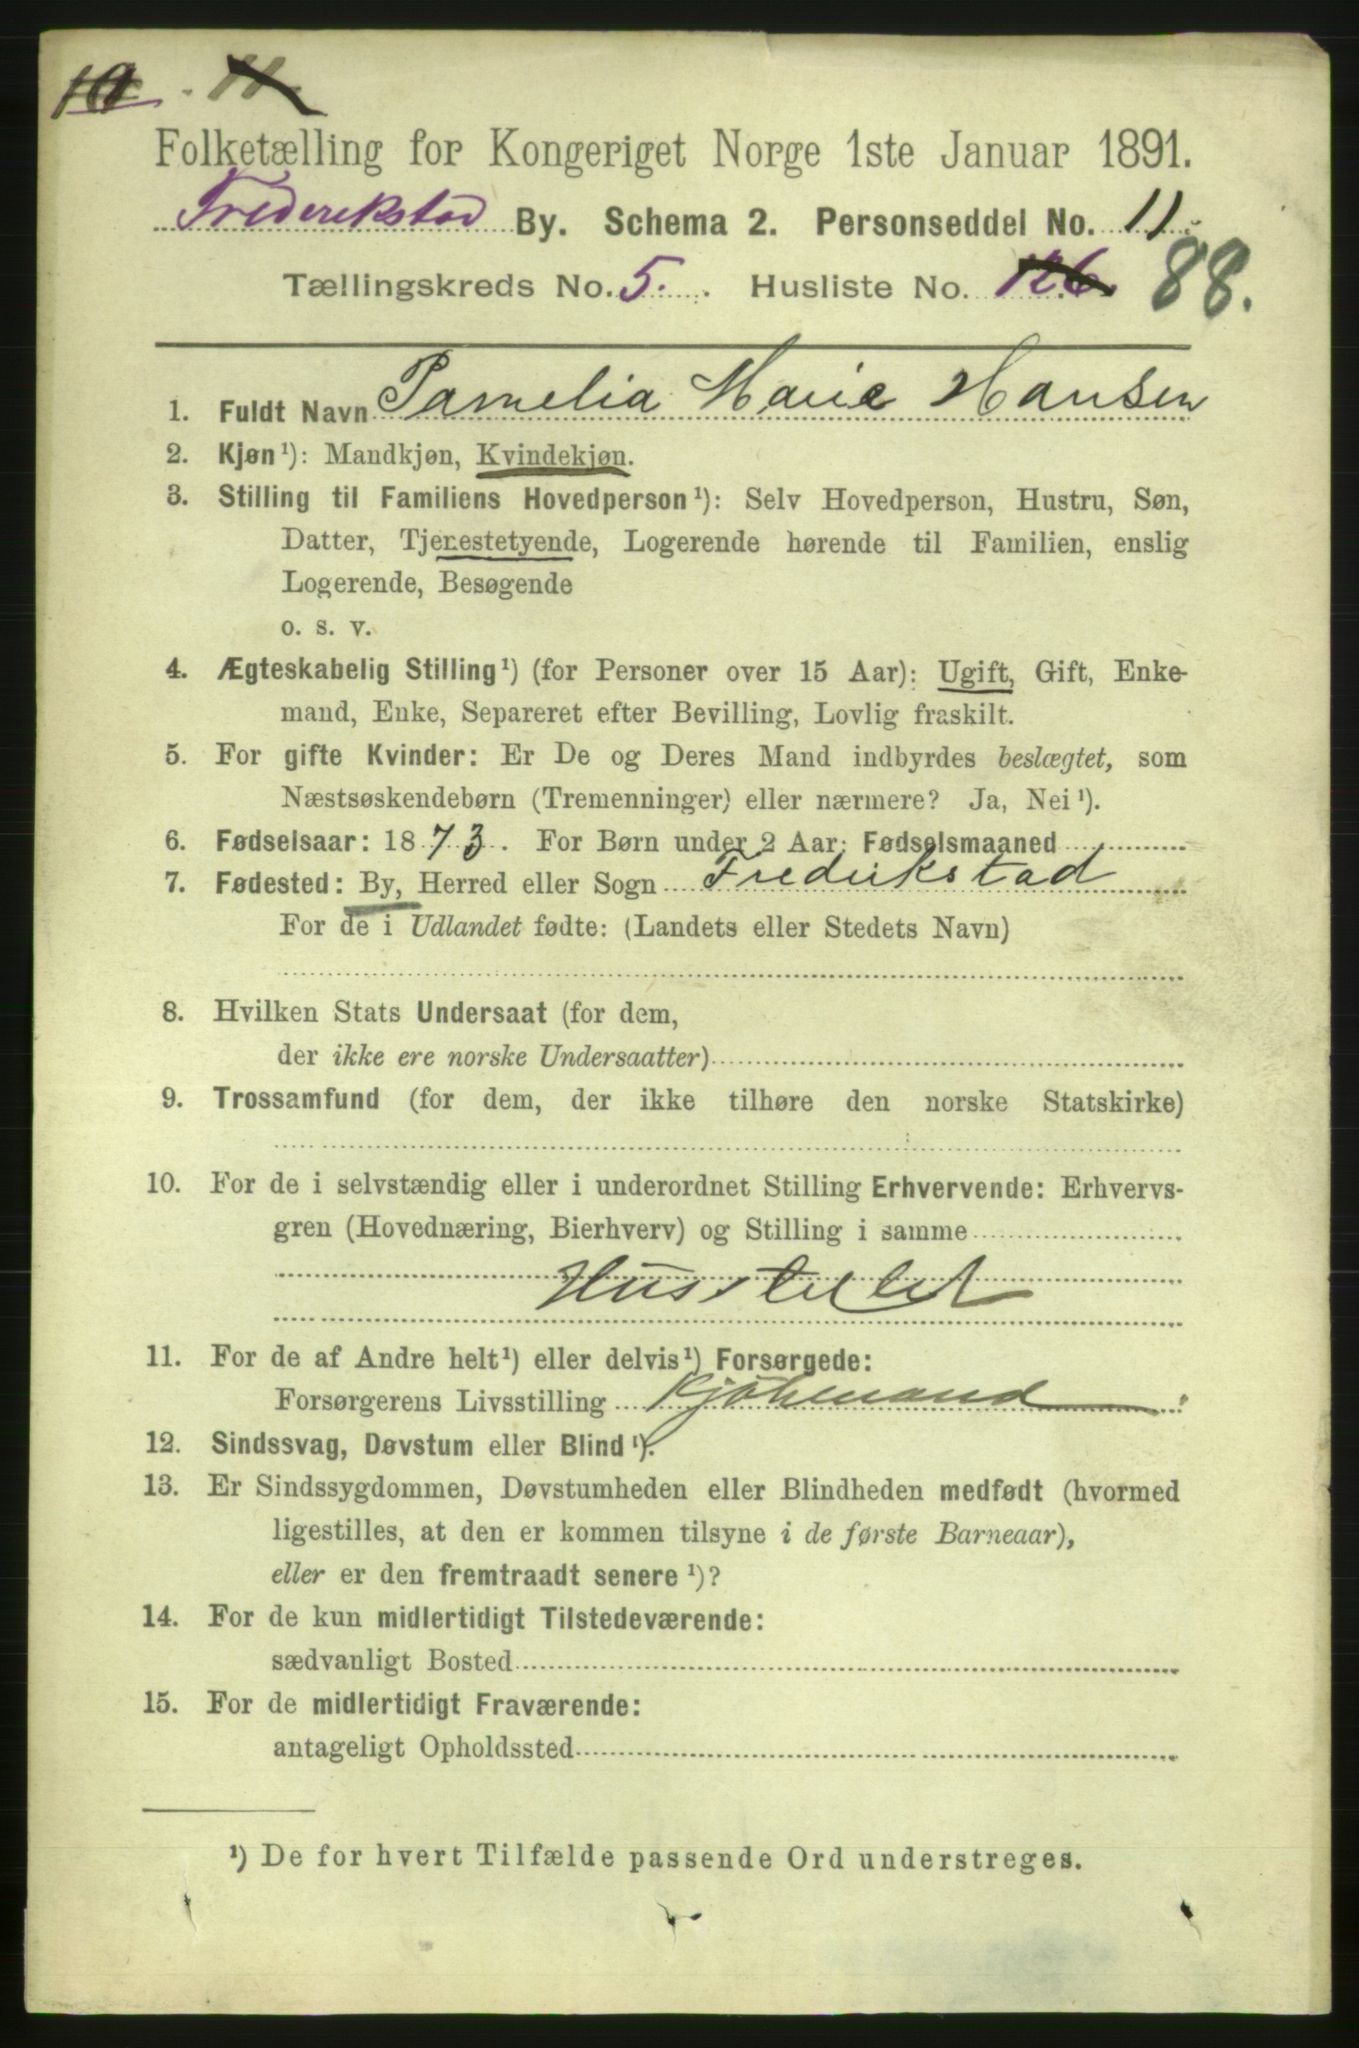 10 . 11.
Folketælling for Kongeriget Norge 1ste Januar 1891.
Frederikstad By. Schema 2. Personseddel No. 11.
Tællingskreds No. 5. Husliste No. 126. 88.
1. Fuldt Navn Pamelia Marie Hansen
2. Kjøn¹): Mandkjøn, Kvindekjøn.
3. Stilling til Familiens Hovedperson¹): Selv Hovedperson, Hustru, Søn,
Datter, Tjenestetyende, Logerende hørende til Familien, enslig
Logerende, Besøgende
o. s. v.
4. Ægteskabelig Stilling¹) (for Personer over 15 Aar): Ugift, Gift, Enke-
mand, Enke, Separeret efter Bevilling, Lovlig fraskilt.
5. For gifte Kvinder: Er De og Deres Mand indbyrdes beslægtet, som
Næstsøskendebørn (Tremenninger) eller nærmere? Ja, Nei¹).
6. Fødselsaar: 1873. For Børn under 2 Aar: Fødselsmaaned
7. Fødested: By, Herred eller Sogn Fredrikstad
For de i Udlandet fødte: (Landets eller Stedets Navn)
8. Hvilken Stats Undersaat (for dem,
der ikke ere norske Undersaatter)
9. Trossamfund (for dem, der ikke tilhøre den norske Statskirke)
10. For de i selvstændig eller i underordnet Stilling Erhvervende: Erhvervs-
gren (Hovednæring, Bierhverv) og Stilling i samme
Husstellet
11. For de af Andre helt¹) eller delvis¹) Forsørgede:
Forsørgerens Livsstilling Kjøbmand
12. Sindssvag, Døvstum eller Blind¹).
13. Er Sindssygdommen, Døvstumheden eller Blindheden medfødt (hvormed
ligestilles, at den er kommen tilsyne i de første Barneaar),
eller er den fremtraadt senere¹)?
14. For de kun midlertidigt Tilstedeværende:
sædvanligt Bosted
15. For de midlertidigt Fraværende:
antageligt Opholdssted
¹) De for hvert Tilfælde passende Ord understreges.